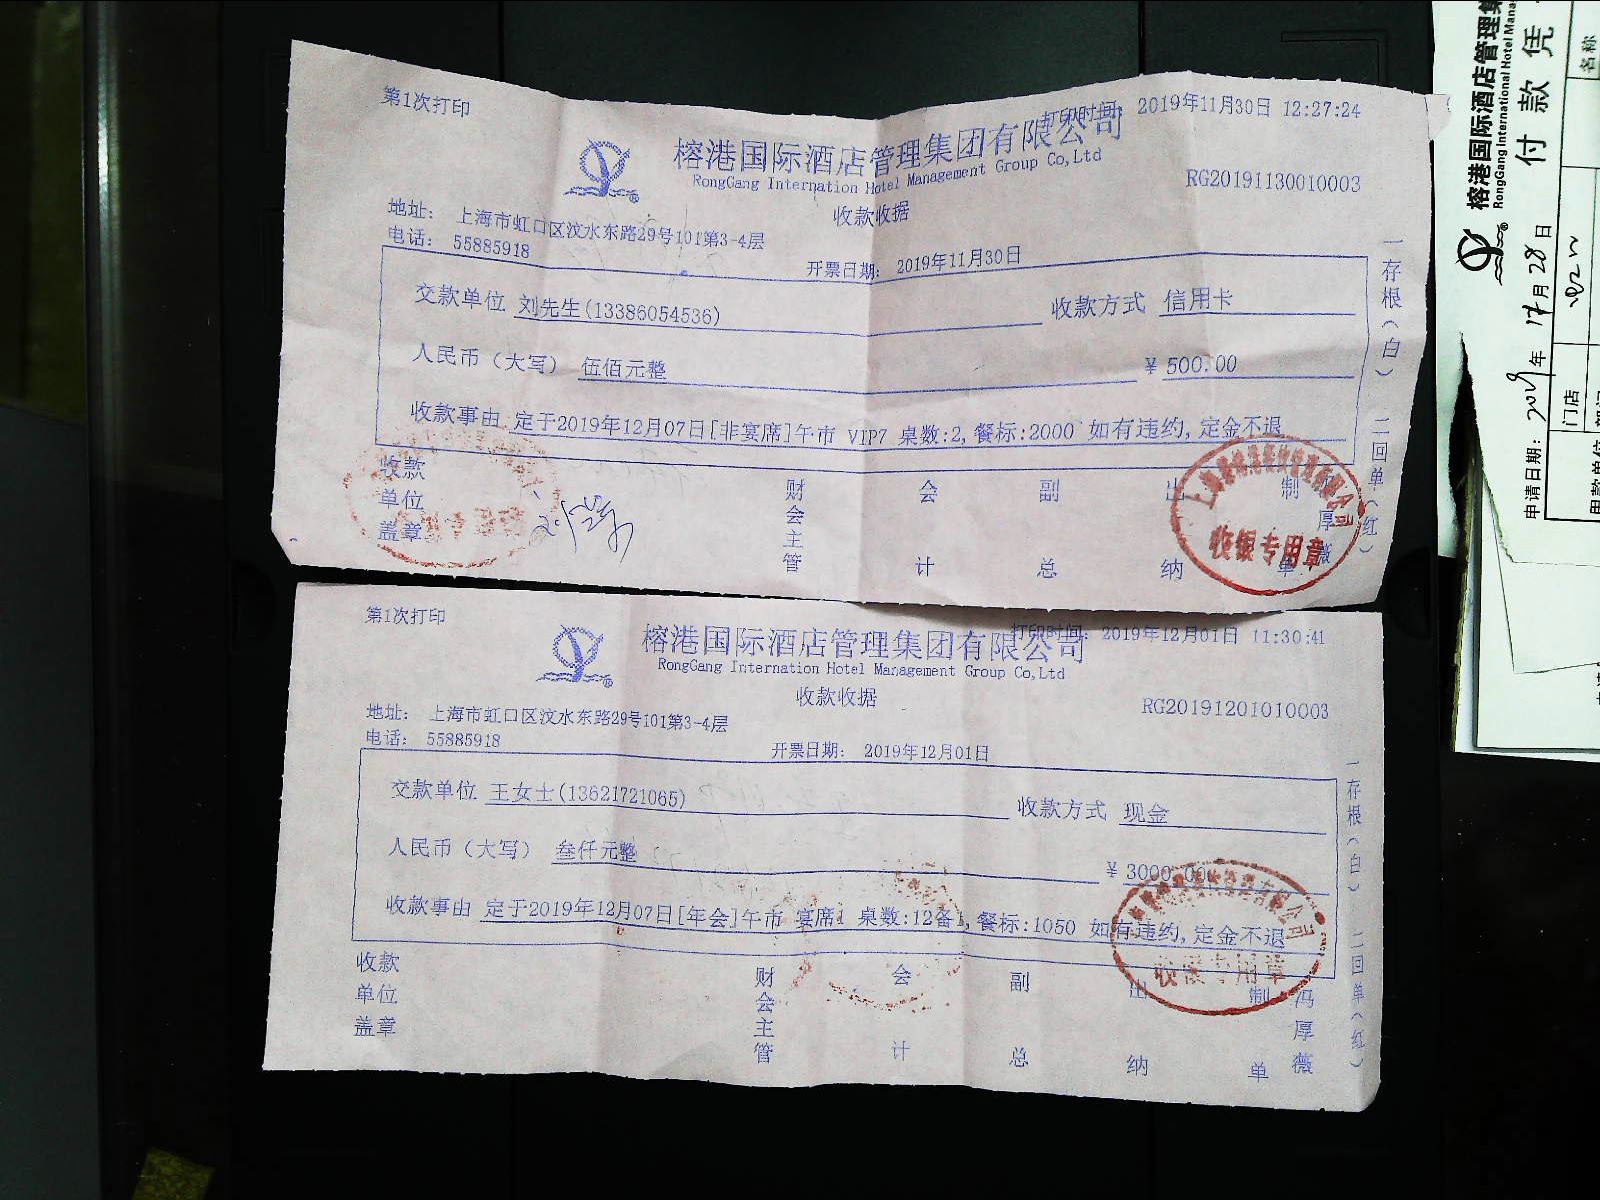 第1次打印
打印时间: 2019年11月30日 12:27:24
榕港国际酒店管理集团有限公司
RongGang Internation Hotel Management Group Co,Ltd
RG20191130010003
收款收据
地址: 上海市虹口区汶水东路29号101第3-4层
电话: 55885918
开票日期: 2019年11月30日
交款单位 刘先生(13386054536) 收款方式 信用卡
人民币(大写) 伍佰元整 ¥ 500.00
收款事由 定于2019年12月07日[非宴席]午市 VIP7 桌数:2,餐标:2000 如有违约,定金不退
收款单位盖章 财会主管 会计 副总 出纳 制单 厚薇
收银专用章
一存根(白) 二回单(红)
第1次打印
打印时间: 2019年12月01日 11:30:41
榕港国际酒店管理集团有限公司
RongGang Internation Hotel Management Group Co,Ltd
收款收据
RG20191201010003
地址: 上海市虹口区汶水东路29号101第3-4层
电话: 55885918
开票日期: 2019年12月01日
交款单位 王女士(13621721065) 收款方式 现金
人民币(大写) 叁仟元整 ¥ 3000.00
收款事由 定于2019年12月07日[年会]午市 宴席1 桌数:12备1,餐标:1050 如有违约,定金不退
收款单位盖章 财会主管 会计 副总 出纳 制单 冯厚薇
收银专用章
一存根(白) 二回单(红)
榕港国际酒店管理集
RongGang International Hotel Mana
付款凭
申请日期: 2019年 11月 28日
名称
门店